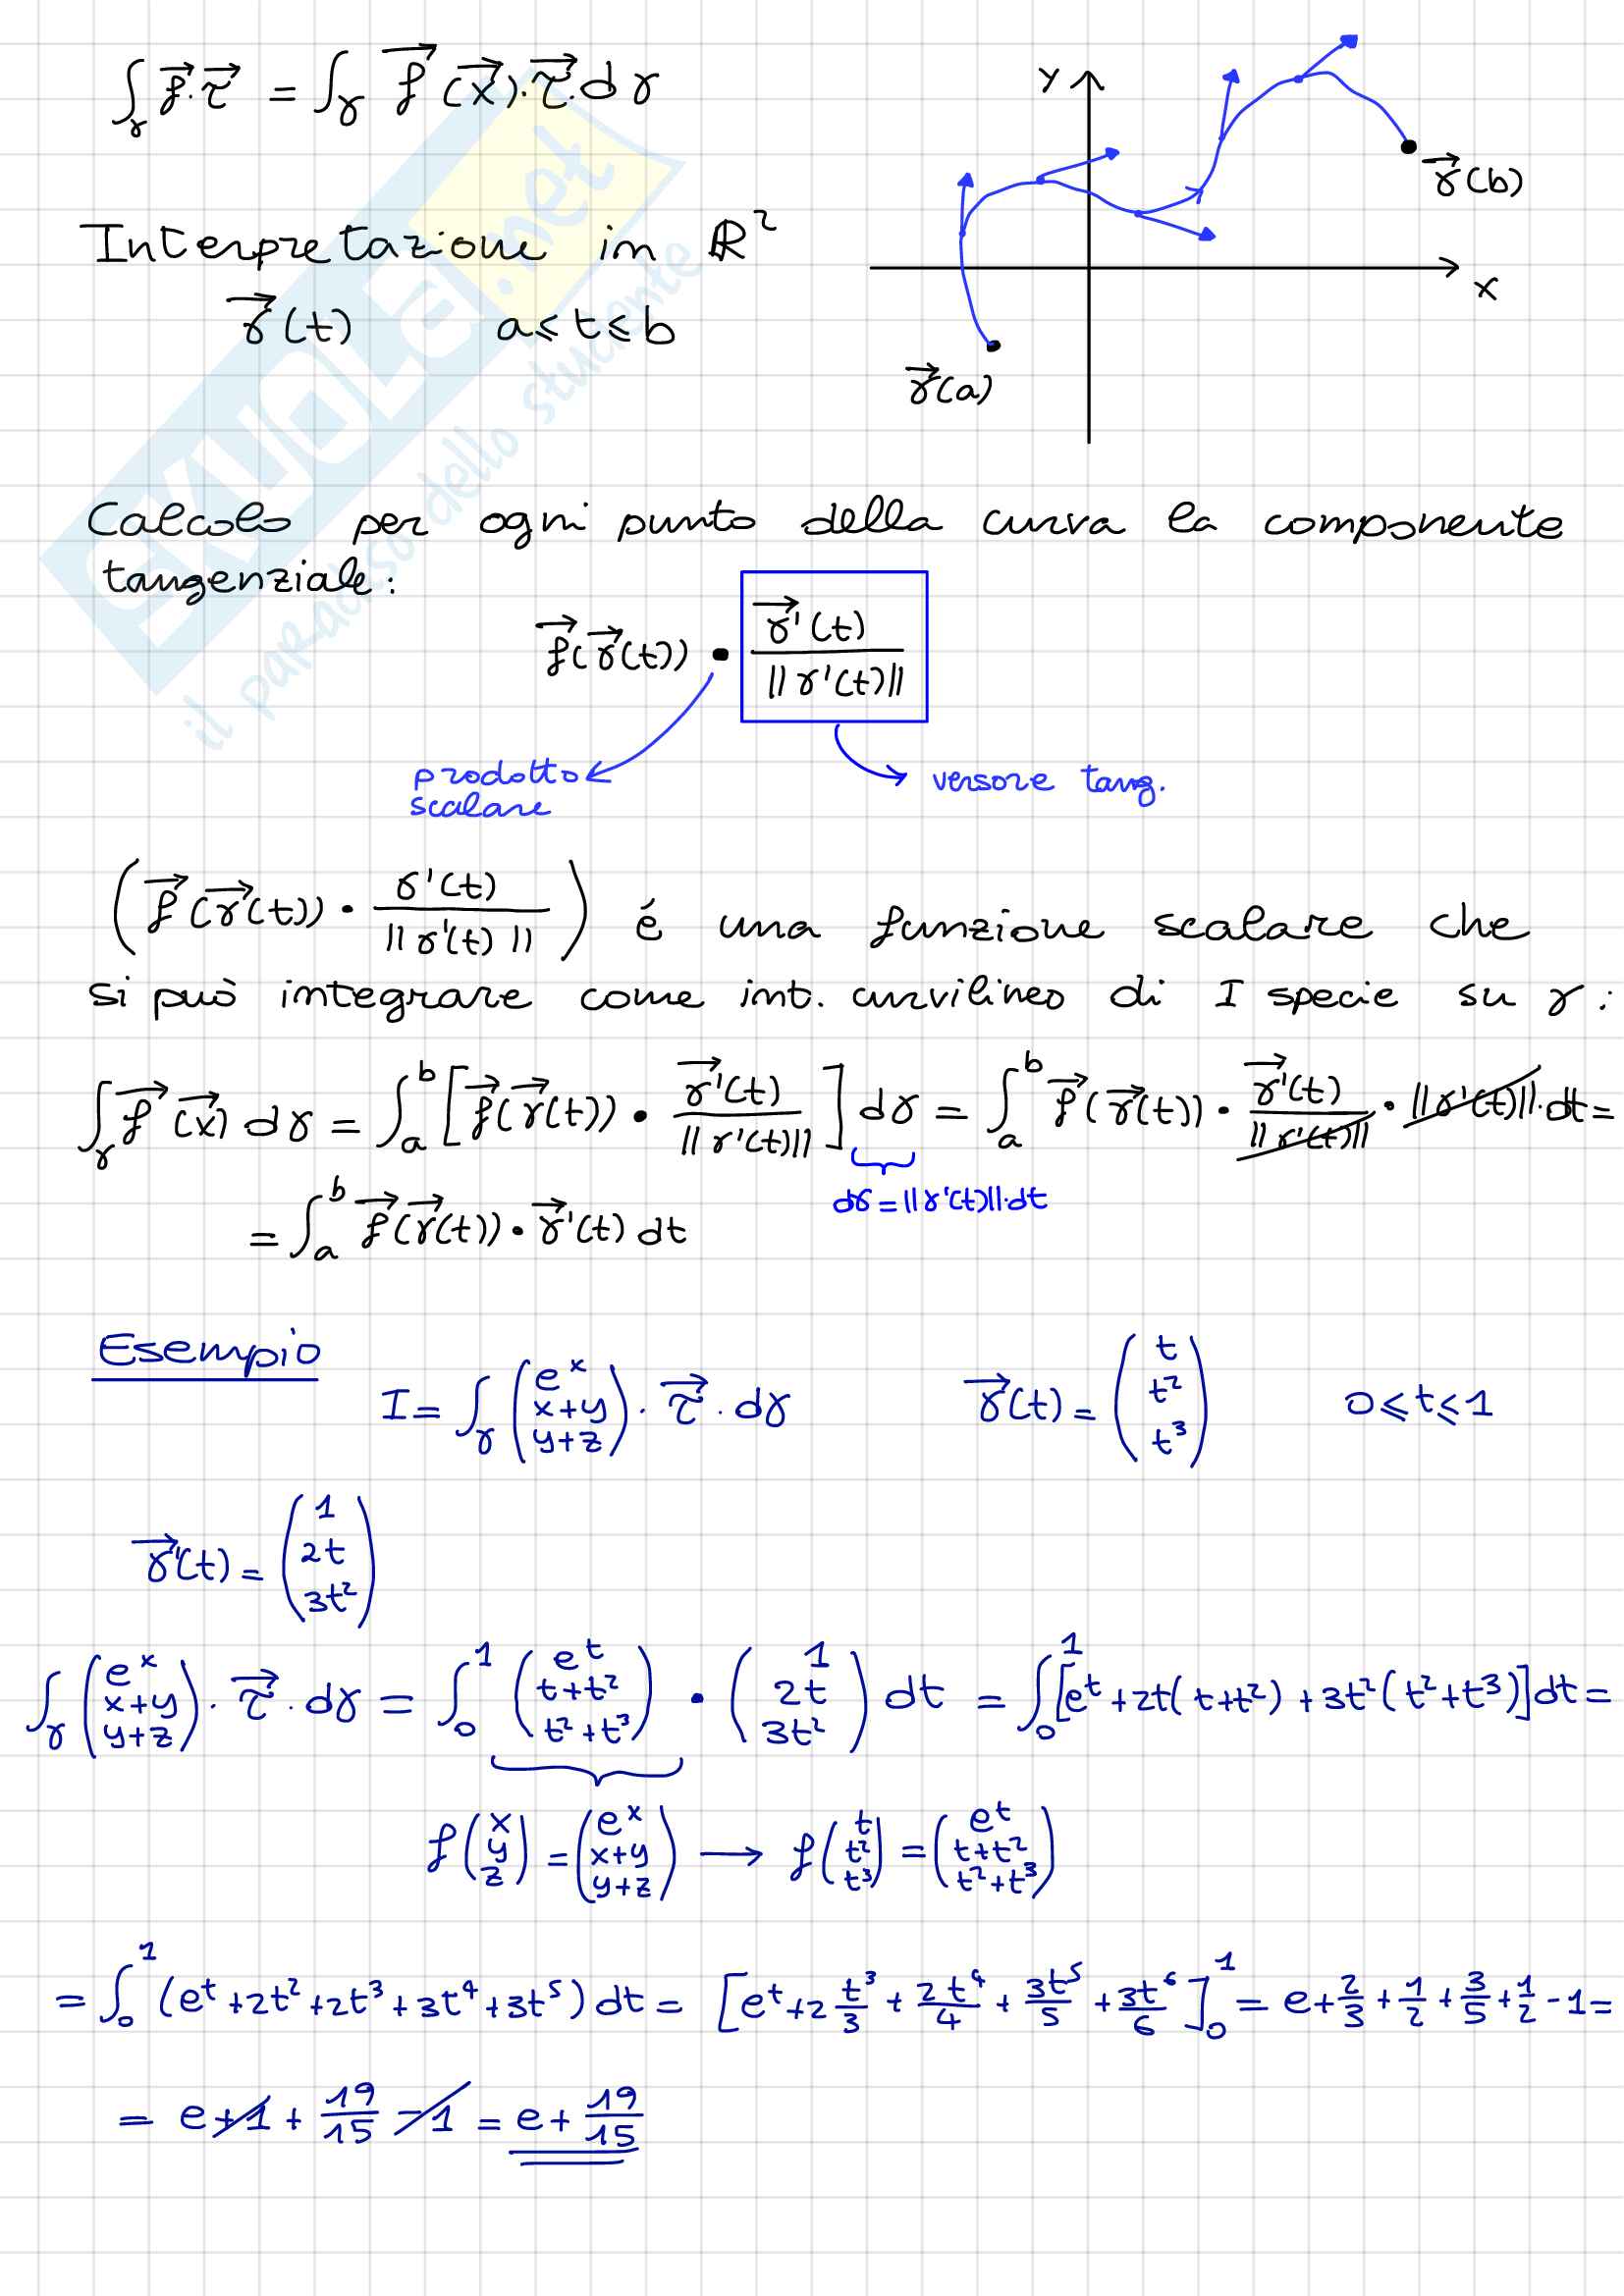 ∫_γ f⃗·τ⃗ = ∫_γ f⃗(x⃗)·τ⃗·dγ
y
x
γ⃗(b)
γ⃗(a)
Interpretazione in ℝ²
γ⃗(t) a≤t≤b
Calcolo per ogni punto della curva la componente
tangenziale:
f⃗(γ⃗(t)) • γ⃗'(t)/||γ'(t)||
prodotto scalare
versore tang.
(f⃗(γ⃗(t)) • γ'(t)/||γ'(t)||) é una funzione scalare che
si può integrare come int. curvilineo di I specie su γ:
∫_γ f⃗(x⃗) dγ = ∫_a^b [f⃗(γ⃗(t)) • γ⃗'(t)/||γ'(t)||] dγ = ∫_a^b f⃗(γ⃗(t)) • γ⃗'(t)/||γ'(t)|| • ||γ'(t)||·dt =
dγ = ||γ'(t)||·dt
= ∫_a^b f⃗(γ⃗(t)) • γ⃗'(t) dt
Esempio
I = ∫_γ (e^x, x+y, y+z) · τ⃗ · dγ γ⃗(t) = (t, t², t³) 0≤t≤1
γ⃗'(t) = (1, 2t, 3t²)
∫_γ (e^x, x+y, y+z) · τ⃗ · dγ = ∫_0^1 (e^t, t+t², t²+t³) • (1, 2t, 3t²) dt = ∫_0^1 [e^t + 2t(t+t²) + 3t²(t²+t³)] dt =
f(x, y, z) = (e^x, x+y, y+z) → f(t, t², t³) = (e^t, t+t², t²+t³)
= ∫_0^1 (e^t + 2t² + 2t³ + 3t⁴ + 3t⁵) dt = [e^t + 2 t³/3 + 2t⁴/4 + 3t⁵/5 + 3t⁶/6]_0^1 = e + 2/3 + 1/2 + 3/5 + 1/2 - 1 =
= e + 1 + 19/15 - 1 = e + 19/15
SKUOLA.net
il paradiso dello studente